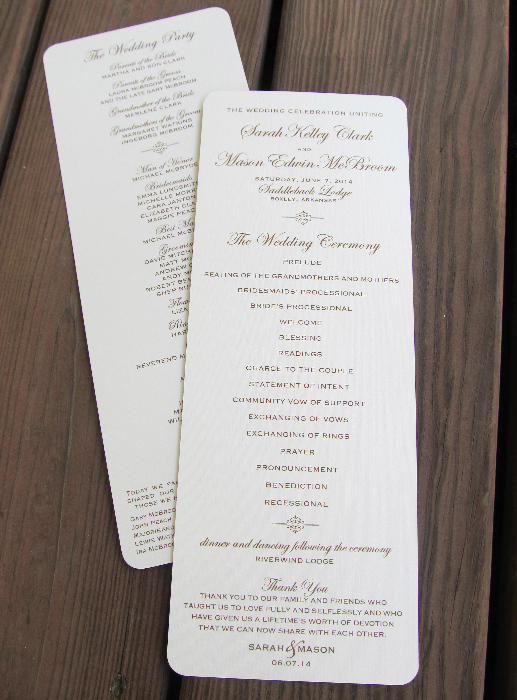 The Wedding Party
Parents of the Bride
MARTHA AND RON CLARK
Parents of the Groom
LAURA MCBROOM PEACH
AND THE LATE GARY MCBROOM
Grandmother of the Bride
MERLENE CLARK
Grandmothers of the Groom
MARGARET WATKINS
INGEBORG MCBROOM
Man of Honor
MICHAEL MCBRYDE
Bridesmaids
EMMA LUNGSMIT
MICHELLE MORR
CARA JAXTON
ELIZABETH CLA
MAGGIE PEAC
Best Ma
MICHAEL MC
Grooms
DAVID MITCH
MATT MC
ANDREW
ANDY M
ROBERT BE
SHEP RI
Flow
LIZA
Rin
HAR
REVEREND M
TODAY WE PA
SHAPED OUR
THOSE WE
GARY MCBROO
JOHN PEACH
MARJORIE
LEWIS WAT
IRA MCBRO
THE WEDDING CELEBRATION UNITING
Sarah Kelley Clark
AND
Mason Edwin McBroom
SATURDAY, JUNE 7, 2014
Saddleback Lodge
BOXLEY, ARKANSAS
The Wedding Ceremony
PRELUDE
SEATING OF THE GRANDMOTHERS AND MOTHERS
BRIDESMAIDS' PROCESSIONAL
BRIDE'S PROCESSIONAL
WELCOME
BLESSING
READINGS
CHARGE TO THE COUPLE
STATEMENT OF INTENT
COMMUNITY VOW OF SUPPORT
EXCHANGING OF VOWS
EXCHANGING OF RINGS
PRAYER
PRONOUNCEMENT
BENEDICTION
RECESSIONAL
dinner and dancing following the ceremony
RIVERWIND LODGE
Thank You
THANK YOU TO OUR FAMILY AND FRIENDS WHO
TAUGHT US TO LOVE FULLY AND SELFLESSLY AND WHO
HAVE GIVEN US A LIFETIME'S WORTH OF DEVOTION
THAT WE CAN NOW SHARE WITH EACH OTHER.
SARAH & MASON
06.07.14